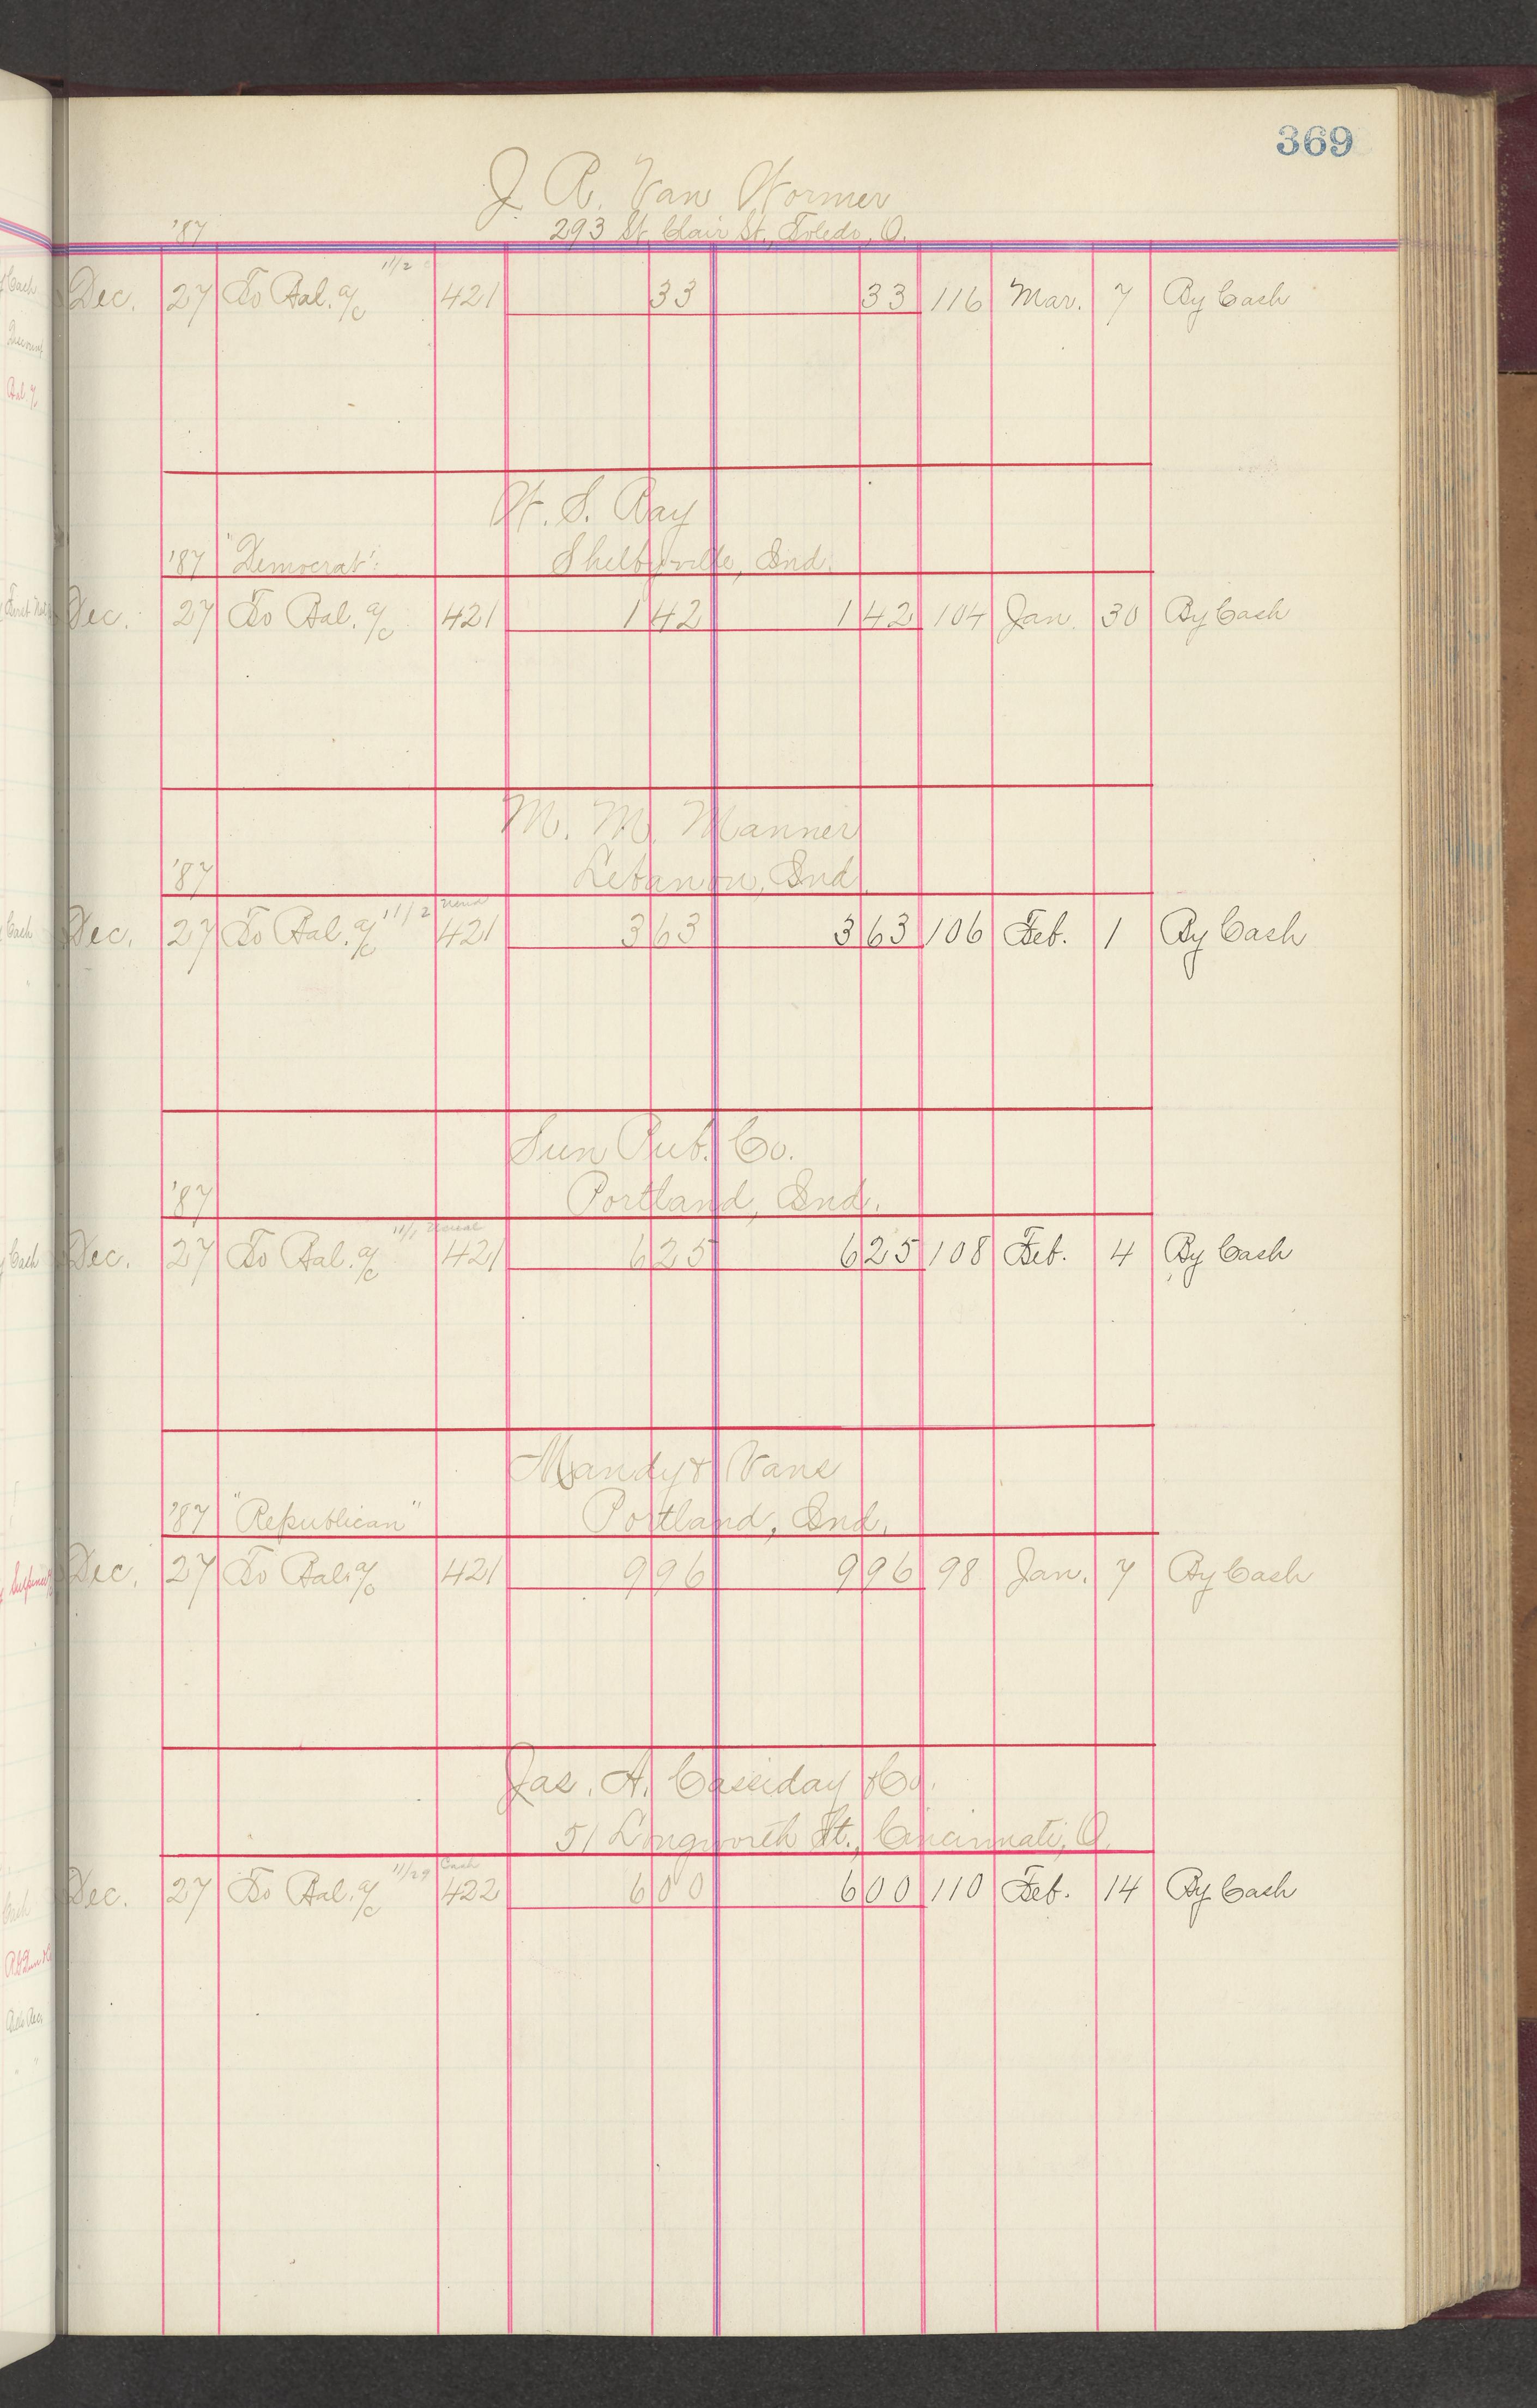 369
J. A. Van Wormer
'87 293 St. Clair St., Toledo, O.
11/2
Dec. 27 To Bal. a/c 421 33 33 116 Mar. 7 By Cash
W. S. Ray
'87 "Democrat" Shelbyville, Ind.
Dec. 27 To Bal. a/c 421 1 42 1 42 104 Jan. 30 By Cash
M. M. Manner
'87 Lebanon, Ind.
11/2 Usual
Dec. 27 To Bal. a/c 421 3 63 3 63 106 Feb. 1 By Cash
Sun Pub. Co.
'87 Portland, Ind.
11/1 Usual
Dec. 27 To Bal. a/c 421 6 25 6 25 108 Feb. 4 By Cash
& Vance
'87 "Republican" Portland, Ind.
Dec. 27 To Bal. a/c 421 9 96 9 96 98 Jan. 7 By Cash
Jas. A. Cassiday & Co.
51 Longworth St., Cincinnati, O.
11/29 Cash
Dec. 27 To Bal. a/c 422 6 00 6 00 110 Feb. 14 By Cash